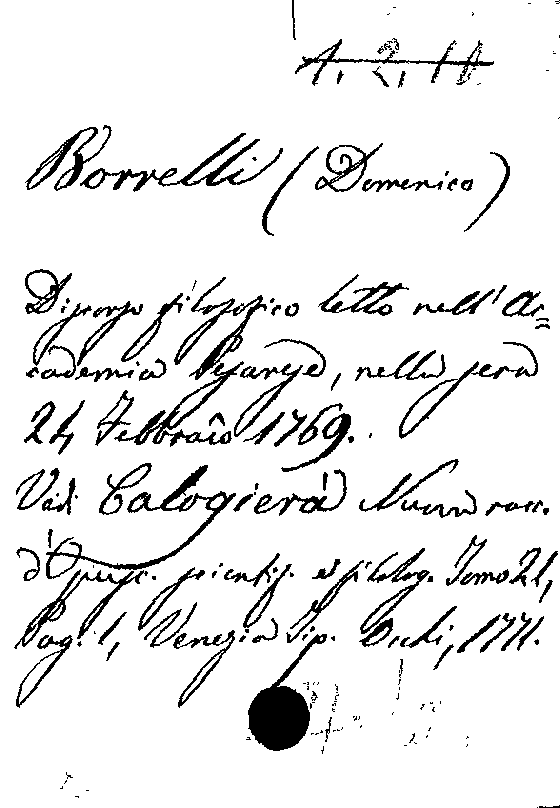 1. 2. 10
Borrelli (Domenico)
Discorso filosofico letto nell'Ac=
cademia Pesarese, nella sera
24 Febbraio 1769.
Vedi Calogierà Nuova racc.
d'Opusc. scientif. e filolog. Tomo 21,
Pag. 1, Venezia Tip. Occhi, 1771.